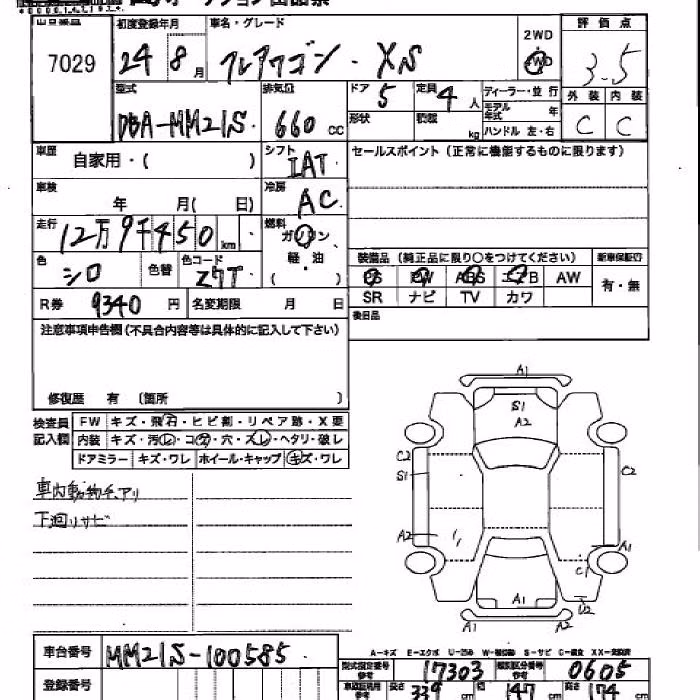 出品番号 初度登録年月 車名・グレード 2WD 評価点
7029 24 8月 フレアワゴン・XS 4WD 3.5
型式 排気量 ドア 5 定員 4人 ディーラー・並行 外装 内装
DBA-MM21S 660cc 形状 積載 kg モデル年式 年 ハンドル 左・右 C C
車歴 自家用・( ) シフト IAT セールスポイント(正常に機能するものに限ります)
車検 年 月( 日) 冷房 AC
走行 12万9千450km 燃料 ガソリン
色 シロ 色替 色コード Z7T 軽・油 ( )
装備品(純正品に限り○をつけてください) 新車保証書
PS PW ABS エアB AW 有・無
SR ナビ TV カワ
R券 9340円 名変期限 月 日
後日品
注意事項申告欄(不具合内容等は具体的に記入して下さい)
修復歴 有 (箇所 )
検査員記入欄 FW キズ・飛石・ヒビ割・リペア跡・X要
内装 キズ・汚レ・コゲ・穴・スレ・ヘタリ・破レ
ドアミラー キズ・ワレ ホイール・キャップ キズ・ワレ
車内動物チ,アリ
下廻リサビ
A1
S1
A2
C2 C2
S1
A2 A1
C1
A1 U2
A1 A2
A-キズ E-エクボ U-凹み W-補修跡 S-サビ C-腐食 XX-交換済
車台番号 MM21S-100585
型式指定番号 参考 17303 類別区分番号 参考 0605
登録番号 長さ 339cm 幅 147cm 高さ 174cm